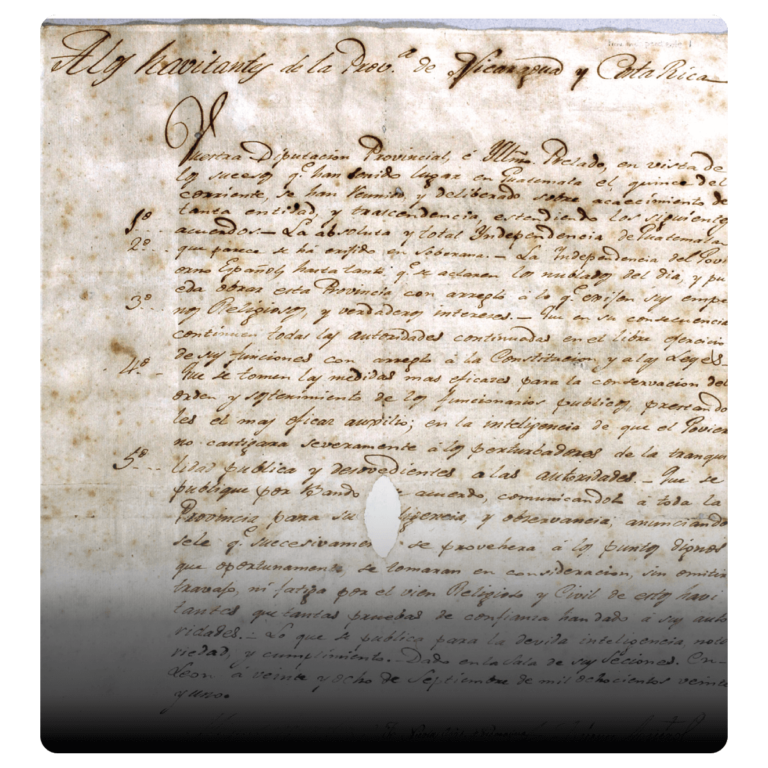 A los havitantes de la Prov.ª de Nicaragua y Costa Rica
Vuestra Diputacion Provincial, é Yllmo. Prelado, en vista de
los sucesos q.e han tenido lugar en Guatemala el quince del
corriente, se han reunido, y deliberado sobre acaecimiento de
tanta entidad, y trascendencia, estendiendo los siguientes
1.º acuerdos.- La absoluta y total Yndependencia de Guatemala
2.º que parece se há erijido en Soberana.- La Independencia del Govi
erno Español, hasta tanto q.e se aclaren los nublados del dia, y pu
eda obrar esta Provincia con arreglo á lo q.e exijen sus empe
3.º nos Religiosos, y verdaderos intereses.- Que en su consecuencia
continuen todas las autoridades continuadas en el libre ejercicio
de sus funciones con arreglo á la Constitucion, y a los Leyes.-
4.º Que se tomen las medidas mas eficaces para la conservacion del
orden y sostenimiento de los funcionarios publicos, prestando
les el mas eficaz auxilio; en la inteligencia de que el Govier
no castigara severamente á los perturbadores de la tranqui
5.º lidad publica y desovedientes a las autoridades - Que se
publique por Vando acuerdo, comunicandole á toda la
Provincia para su y observancia, anunciando
sele q.e succesivamen se provehera á los puntos dignos
que oportunamente, se tomaran en consideracion, sin omitir
travajo, ni fatiga por el vien Religioso y Civil de estos havi
tantes que tantas pruebas de confianza han dado á sus auto
ridades.- Lo que se publica para la devida inteligencia noto
riedad, y cumplimiento.- Dado en la Sala de sus Seciones. En
Leon á veinte y ocho de Septiembre de mil ochocientos veinte
y uno.